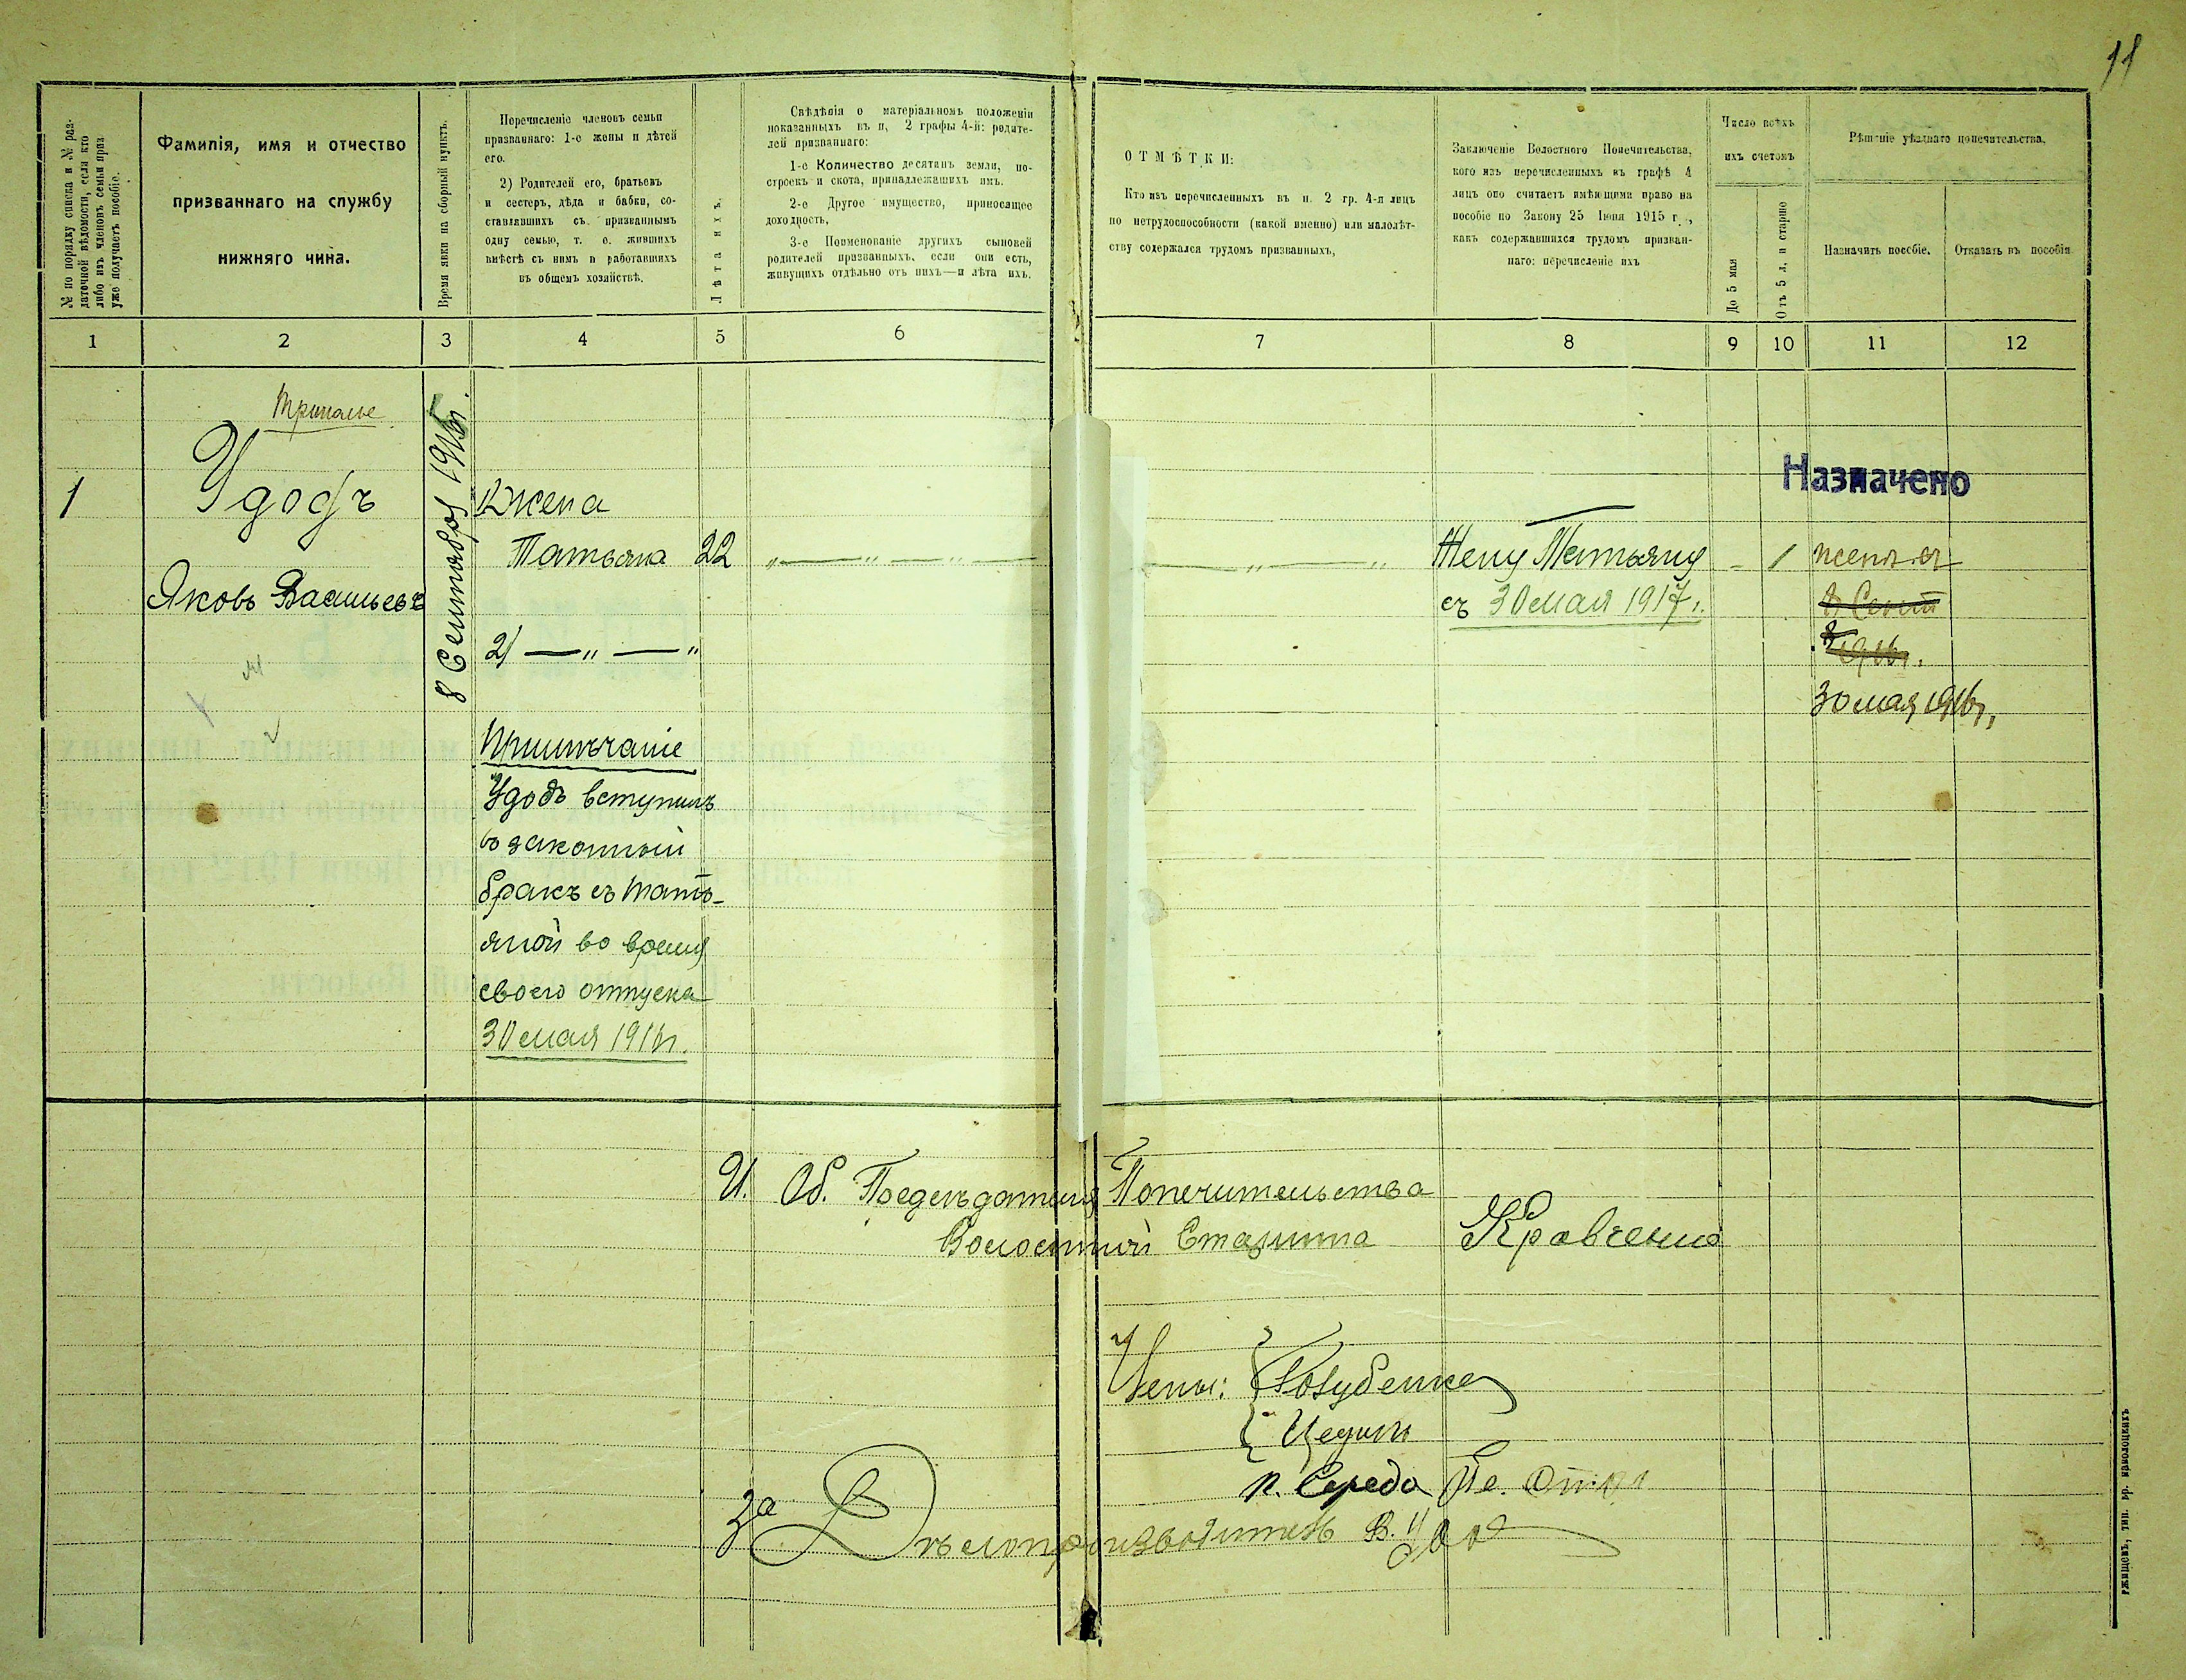 11
№ по порядку списка и № раз-
даточной вѣдомости, если кто
либо изъ членовъ семьи приз
уже получаетъ пособіе.
Фамилія, имя и отчество
призваннаго на службу
нижняго чина.
Время явки на сборный пунктъ.
Перечисленіе членовъ семьи
призваннаго: 1-е жены и дѣтей
его.
2) Родителей его, братьевъ
и сестеръ, дѣда и бабки, со-
ставлявшихъ съ призваннымъ
одну семью, т. е. жившихъ
вмѣстѣ съ нимъ и работавшихъ
въ общемъ хозяйствѣ.
Лѣта ихъ.
Свѣдѣнія о матеріальномъ положеніи
показанныхъ въ п, 2 графы 4-й: родите-
лей призваннаго:
1-е Количество десятинъ земли, по-
строекъ и скота, принадлежащихъ имъ.
2-е Другое имущество, приносящее
доходность,
3-е Поименованіе другихъ сыновей
родителей призванныхъ, если они есть,
живущихъ отдѣльно отъ нихъ—и лѣта ихъ.
ОТМѢТКИ:
Кто изъ перечисленныхъ въ п. 2 гр. 4-я лицъ
по нетрудоспособности (какой именно) или малолѣт-
ству содержался трудомъ призванныхъ,
Заключеніе Волостного Попечительства,
кого изъ перечисленныхъ въ графѣ 4
лицъ оно считаетъ имѣющими право на
пособіе по Закону 25 Іюня 1915 г.,
какъ содержавшихся трудомъ призван-
наго: перечисленіе ихъ
Число всѣхъ
ихъ счетомъ
До 5 мая
Отъ 5 л. и старше
Рѣшеніе уѣзднаго попечительства.
Назначить пособіе.
Отказать въ пособіи
1 2 3 4 5 6 7 8 9 10 11 12
Триполье
1
Удодъ
Яковъ Васильевъ
8 Сентября 1915г.
1) Жена
Татьяна 22 „—„—
2) —„—„
Примѣчаніе
Удодъ вступилъ
въ законный
бракъ съ Тать-
яной во время
своего отпуска
30 мая 1916г.
—„—„
Жену Татьяну - 1
съ 30 мая 1917г.
Назначено
женѣ съ
8 Сент
30 мая 1916г,
И. Об. Предсѣдателя Попечительства
Волостной Старшина Кравченко
Члены: Голубенко
п. Середа
За Дѣлопроизводитель В. Удод
ржищевъ, тип. бр. наволоцкихъ